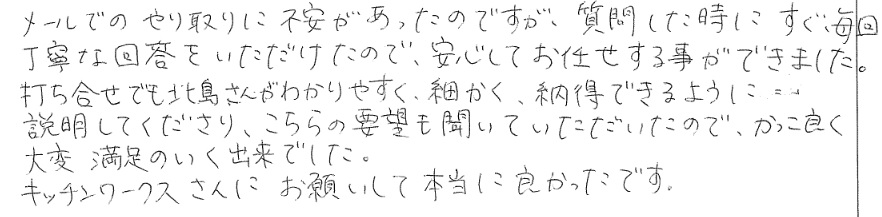 メールでの やり取りに 不安があったのですが、質問した時に すぐ、毎回
丁寧な回答をいただけたので、安心してお任せする事ができました。
打ち合せでも北島さんがわかりやすく、細かく、納得できるように
説明してくださり、こちらの要望も聞いていただいたので、かっこ良く
大変 満足のいく出来でした。
キッチンワークスさんに お願いして本当に良かったです。